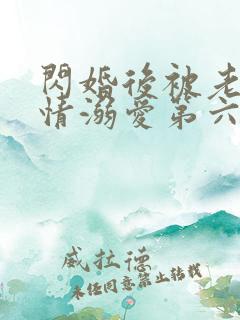 閃婚後被老
情溺愛第六
威拉德
未經同意禁止轉載